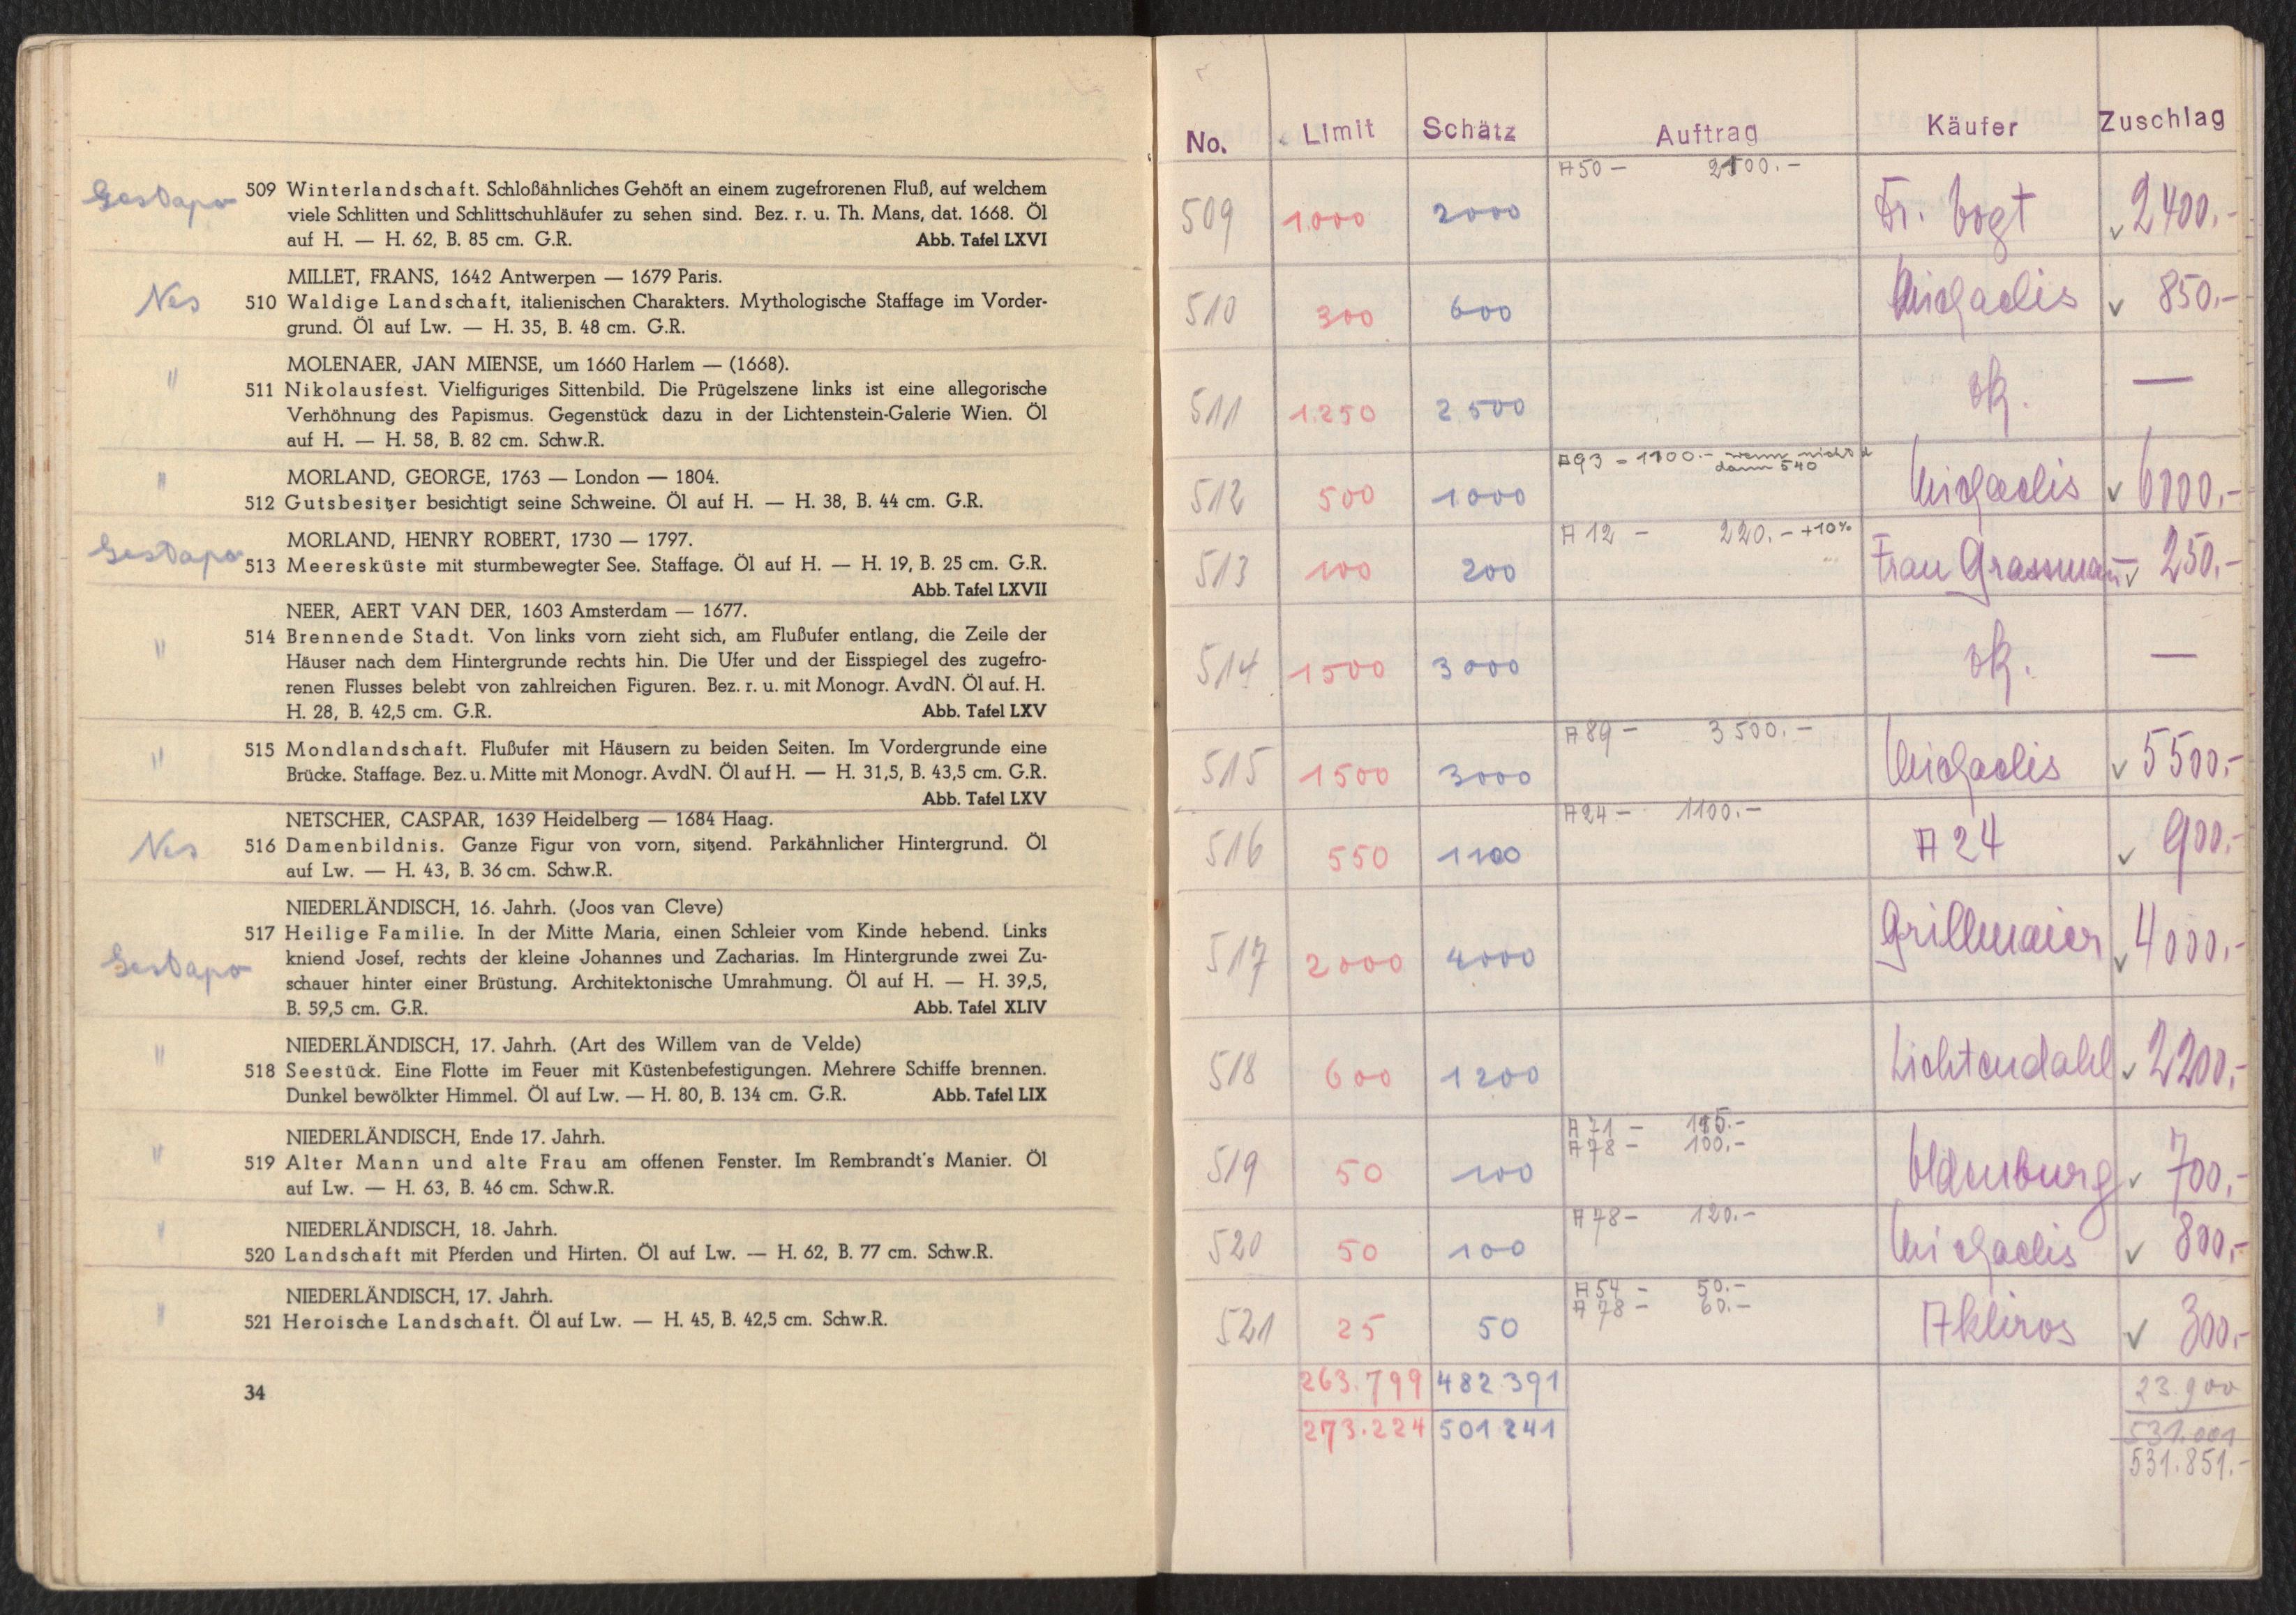 Gestapo
509 Winterlandschaft. Schloßähnliches Gehöft an einem zugefrorenen Fluß, auf welchem
viele Schlitten und Schlittschuhläufer zu sehen sind. Bez. r. u. Th. Mans, dat. 1668. Öl
auf H. — H. 62, B. 85 cm. G.R. Abb. Tafel LXVI
MILLET, FRANS, 1642 Antwerpen — 1679 Paris.
Nes
510 Waldige Landschaft, italienischen Charakters. Mythologische Staffage im Vorder-
grund. Öl auf Lw. — H. 35, B. 48 cm. G.R.
MOLENAER, JAN MIENSE, um 1660 Harlem — (1668).
"
511 Nikolausfest. Vielfiguriges Sittenbild. Die Prügelszene links ist eine allegorische
Verhöhnung des Papismus. Gegenstück dazu in der Lichtenstein-Galerie Wien. Öl
auf H. — H. 58, B. 82 cm. Schw.R.
MORLAND, GEORGE, 1763 — London — 1804.
"
512 Gutsbesitzer besichtigt seine Schweine. Öl auf H. — H. 38, B. 44 cm. G.R.
MORLAND, HENRY ROBERT, 1730 — 1797.
Gestapo
513 Meeresküste mit sturmbewegter See. Staffage. Öl auf H. — H. 19, B. 25 cm. G.R.
Abb. Tafel LXVII
NEER, AERT VAN DER, 1603 Amsterdam — 1677.
"
514 Brennende Stadt. Von links vorn zieht sich, am Flußufer entlang, die Zeile der
Häuser nach dem Hintergrunde rechts hin. Die Ufer und der Eisspiegel des zugefro-
renen Flusses belebt von zahlreichen Figuren. Bez. r. u. mit Monogr. AvdN. Öl auf. H.
H. 28, B. 42,5 cm. G.R. Abb. Tafel LXV
"
515 Mondlandschaft. Flußufer mit Häusern zu beiden Seiten. Im Vordergrunde eine
Brücke. Staffage. Bez. u. Mitte mit Monogr. AvdN. Öl auf H. — H. 31,5, B. 43,5 cm. G.R.
Abb. Tafel LXV
NETSCHER, CASPAR, 1639 Heidelberg — 1684 Haag.
Nes
516 Damenbildnis. Ganze Figur von vorn, sitzend. Parkähnlicher Hintergrund. Öl
auf Lw. — H. 43, B. 36 cm. Schw.R.
NIEDERLÄNDISCH, 16. Jahrh. (Joos van Cleve)
Gestapo
517 Heilige Familie. In der Mitte Maria, einen Schleier vom Kinde hebend. Links
kniend Josef, rechts der kleine Johannes und Zacharias. Im Hintergrunde zwei Zu-
schauer hinter einer Brüstung. Architektonische Umrahmung. Öl auf H. — H. 39,5,
B. 59,5 cm. G.R. Abb. Tafel XLIV
NIEDERLÄNDISCH, 17. Jahrh. (Art des Willem van de Velde)
"
518 Seestück. Eine Flotte im Feuer mit Küstenbefestigungen. Mehrere Schiffe brennen.
Dunkel bewölkter Himmel. Öl auf Lw. — H. 80, B. 134 cm. G.R. Abb. Tafel LIX
NIEDERLÄNDISCH, Ende 17. Jahrh.
"
519 Alter Mann und alte Frau am offenen Fenster. Im Rembrandt's Manier. Öl
auf Lw. — H. 63, B. 46 cm. Schw.R.
NIEDERLÄNDISCH, 18. Jahrh.
"
520 Landschaft mit Pferden und Hirten. Öl auf Lw. — H. 62, B. 77 cm. Schw.R.
NIEDERLÄNDISCH, 17. Jahrh.
"
521 Heroische Landschaft. Öl auf Lw. — H. 45, B. 42,5 cm. Schw.R.
34
No. Limit Schätz Auftrag Käufer Zuschlag
A 50 —
509 1.000 2000 Fr. Vogt ✓ 2400.-
510 300 600 Michaelis ✓ 850.-
511 1.250 2.500 —
A 93 - 1100.- wenn nicht
dann 540
512 500 1000 Michaelis ✓ 6000.-
A 12 — 220.- +10%
513 100 200 Frau Grassmann ✓ 250.-
514 1500 3000 —
A 89 — 3500.—
515 1500 3000 Michaelis ✓ 5500.-
A 24 — 1100.—
516 550 1100 A 24 ✓ 900.-
517 2000 4000 Grillmaier ✓ 4000.-
518 600 1200 Lichtendahl ✓ 2200.-
A 71 —
A 78 — 100.-
519 50 100 Oldenburg ✓ 700.-
A 78 — 120.—
520 50 100 Michaelis ✓ 800.-
A 54 — 50.—
A 78 — 60.—
521 25 50 ✓ 300.-
263.799 482.391 23.900
273.224 501.241 531.001
531.851.-